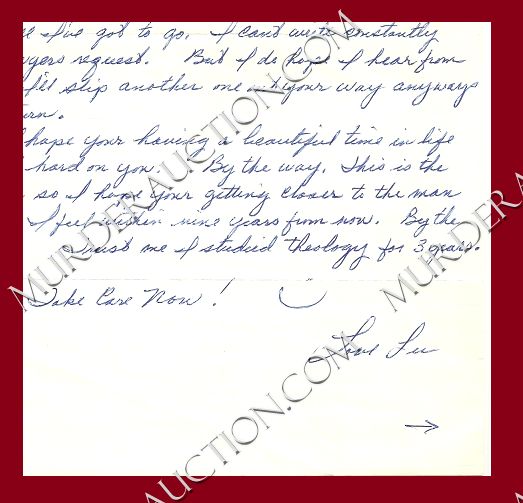 I've got to go. I can't write constantly
yers request. But I do hope I hear from
I'll slip another one in your way anyways
urn.
hope your having a beautiful time in life
hard on you. By the way. This is the
so I hope your getting closer to the man
I feel within nine years from now. By the
Trust me I studied theology for 3 years.
Take Care Now!
Love
MURDERAUCTION.COM
MURDERAUCTION.COM
MURDERAUCTION.COM